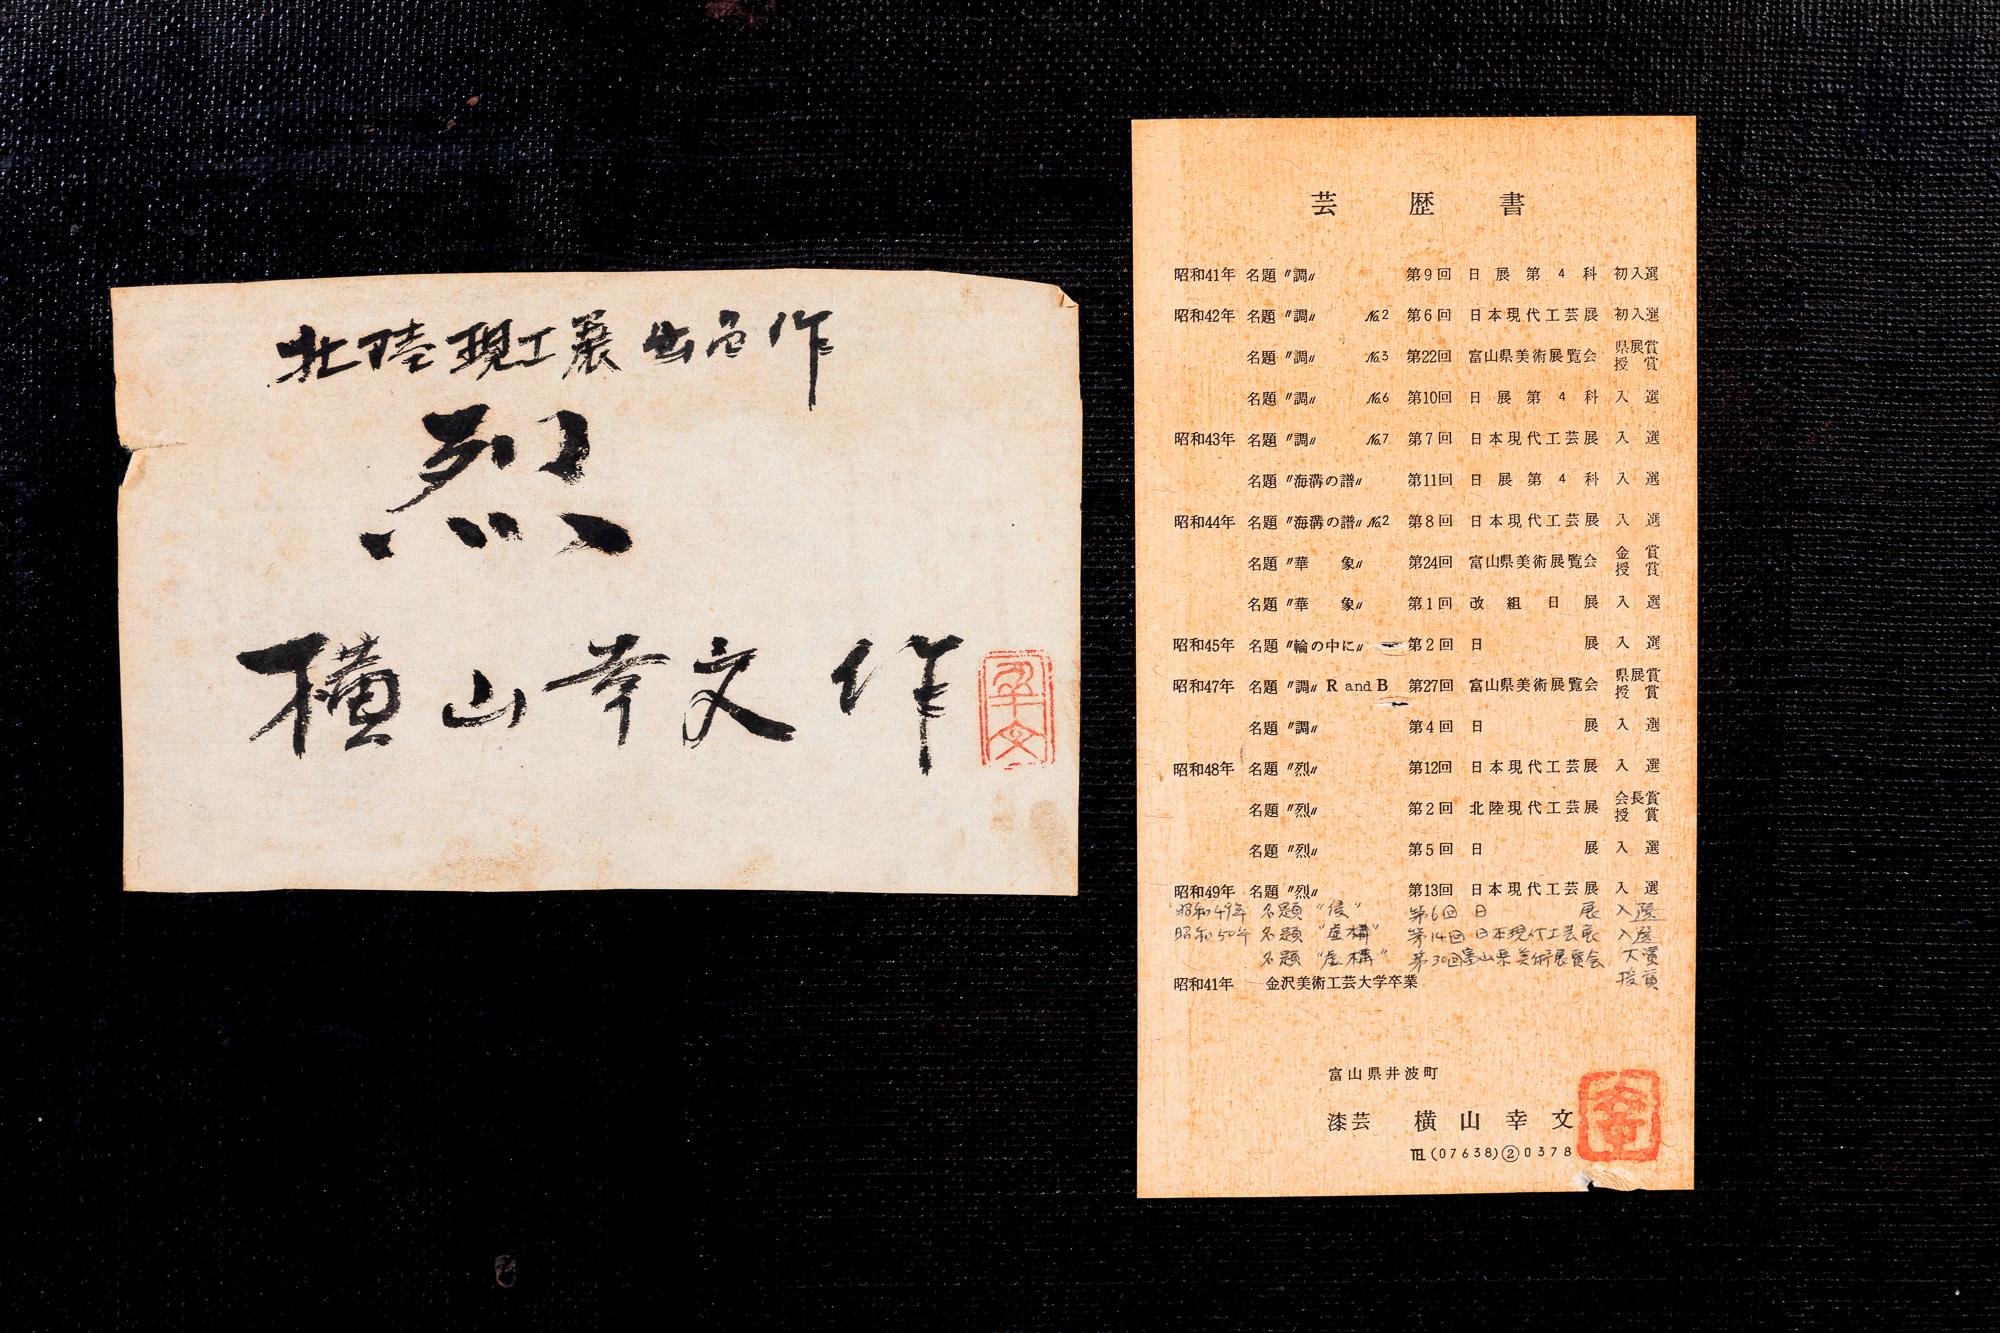 北陸現工展出品作
烈
横山幸文作
幸文
芸歴書
昭和41年 名題〃調〃 第9回 日展第4科 初入選
昭和42年 名題〃調〃 №2 第6回 日本現代工芸展 初入選
名題〃調〃 №3 第22回 富山県美術展覧会 県展賞授賞
名題〃調〃 №6 第10回 日展第4科 入選
昭和43年 名題〃調〃 №7 第7回 日本現代工芸展 入選
名題〃海溝の譜〃 第11回 日展第4科 入選
昭和44年 名題〃海溝の譜〃 №2 第8回 日本現代工芸展 入選
名題〃華象〃 第24回 富山県美術展覧会 金賞授賞
名題〃華象〃 第1回 改組日展 入選
昭和45年 名題〃輪の中に〃 第2回 日展 入選
昭和47年 名題〃調〃 R and B 第27回 富山県美術展覧会 県展賞授賞
名題〃調〃 第4回 日展 入選
昭和48年 名題〃烈〃 第12回 日本現代工芸展 入選
名題〃烈〃 第2回 北陸現代工芸展 会長賞授賞
名題〃烈〃 第5回 日展 入選
昭和49年 名題〃烈〃 第13回 日本現代工芸展 入選
昭和49年 名題 第6回 日展 入選
昭和50年 名題 "虚構" 第14回 日本現代工芸展 入選
名題 "虚構" 第30回 富山県美術展覧会 大賞授賞
昭和41年 金沢美術工芸大学卒業
富山県井波町
漆芸 横山幸文
TEL (07638)②0378